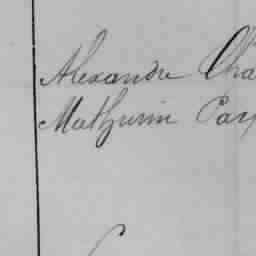 Alexandre Cha
Mathurin Cay